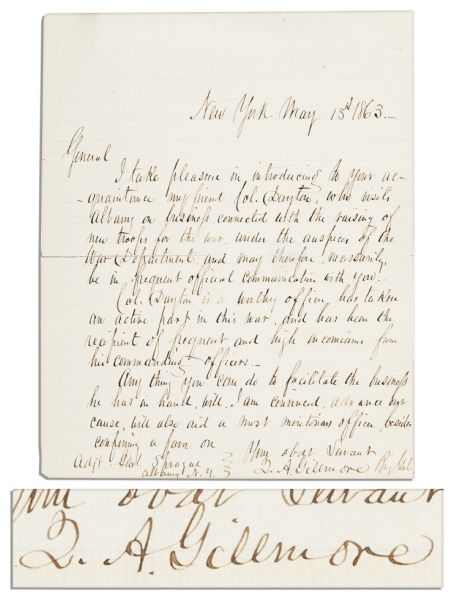 New York May 13th 1863.-
General
I take pleasure in introducing to your ac-
-quaintance my friend Col. Dayton, who visits
Albany on business connected with the raising of
new troops for the war, under the auspices of the
War Department, and may therefore, necessarily,
be in frequent official communication with you.-
Col. Dayton is a worthy officer, has taken
an active part in this war, and has been the
recipient of frequent and high encomiums from
his commanding officers.-
Any thing you can do to facilitate the business
he has in hand, will, I am convinced, advance our
cause, will also aid a most meritorious officer, besides
confering a favor on
Your obdt Servant
Adjt. Genl. Sprague
Albany N.Y
Q. A. Gillmore Brig Genl
Your obdt Servant
Q. A. Gillmore